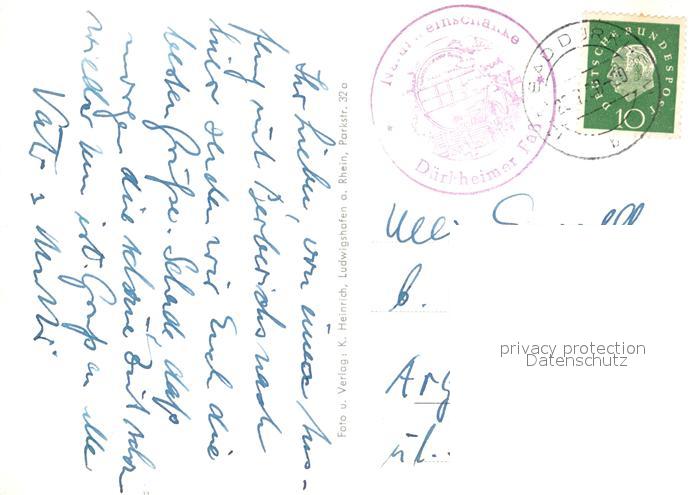 Ihr Lieben, von einem Aus-
flug mit Berberichs nach
hier senden wir Euch die
besten Grüße. Schade, dass
morgen die schöne Zeit schon
wieder um ist. Gruß an alle
Vati u. Mutti
Foto u. Verlag: K. Heinrich, Ludwigshafen a. Rhein, Parkstr. 32a
Naturweinschänke
Dürkheimer Faß
BAD DÜRK
b
DEUTSCHE BUNDESPOST
10
b.
Arg
üb.
privacy protection
Datenschutz